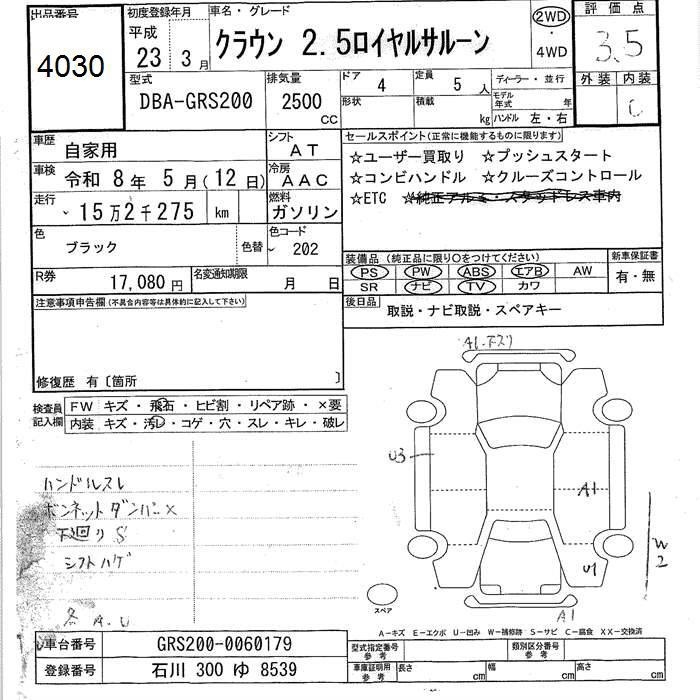 出品番号
4030
初度登録年月
平成
23 3月
車名・グレード
クラウン 2.5ロイヤルサルーン
2WD
・
4WD
評価点
3.5
外装 内装
C
型式
DBA-GRS200
排気量
2500
cc
ドア
4
定員
5人
形状
積載
kg
ディーラー・並行
モデル年式
年
ハンドル 左・右
車歴
自家用
シフト
AT
車検
令和 8年 5月(12日)
冷房
AAC
走行
15万2千275 km
燃料
ガソリン
色
ブラック
色替
色コード
202
R券
17,080円
名変通知期限
月 日
セールスポイント(正常に機能するものに限ります)
☆ユーザー買取り ☆プッシュスタート
☆コンビハンドル ☆クルーズコントロール
☆ETC ☆純正アルミ・スタッドレス車内
装備品(純正品に限り○をつけてください)
PS PW ABS エアB AW
SR ナビ TV カワ
新車保証書
有・無
後日品
取説・ナビ取説・スペアキー
注意事項申告欄(不具合内容等は具体的に記入して下さい)
修復歴 有〔箇所 〕
検査員記入欄
FW キズ・飛石・ヒビ割・リペア跡・×要
内装 キズ・汚レ・コゲ・穴・スレ・キレ・破レ
ハンドルスレ
ボンネットダンパー×
下廻りS
シフトハゲ
各A.U
A1・下スリ
U3
A1
U1
W2
A1
スペア
A-キズ E-エクボ U-凹み W-補修跡 S-サビ C-腐食 XX-交換済
車台番号
GRS200-0060179
登録番号
石川 300 ゆ 8539
型式指定番号
参考
類別区分番号
参考
車庫証明用
参考
長さ cm
幅 cm
高さ cm